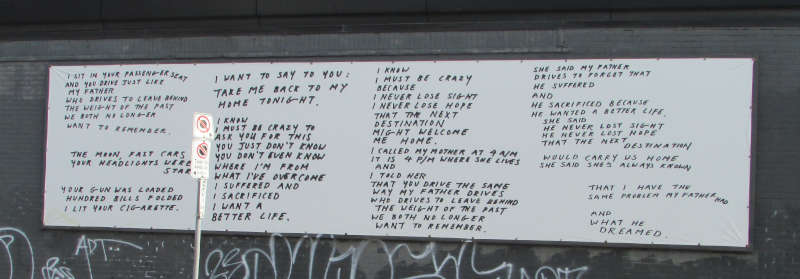 I SIT IN YOUR PASSENGER SEAT
AND YOU DRIVE JUST LIKE
MY FATHER
WHO DRIVES TO LEAVE BEHIND
THE WEIGHT OF THE PAST
WE BOTH NO LONGER
WANT TO REMEMBER.
THE MOON, FAST CARS
YOUR HEADLIGHTS WERE
STAR
YOUR GUN WAS LOADED
HUNDRED BILLS FOLDED
I LIT YOUR CIGARETTE.
I WANT TO SAY TO YOU:
TAKE ME BACK TO MY
HOME TONIGHT.
I KNOW
I MUST BE CRAZY TO
ASK YOU FOR THIS
YOU JUST DON'T KNOW
YOU DON'T EVEN KNOW
WHERE I'M FROM
WHAT I'VE OVERCOME
I SUFFERED AND
I SACRIFICED
I WANT A
BETTER LIFE.
I KNOW
I MUST BE CRAZY
BECAUSE
I NEVER LOSE SIGHT
I NEVER LOSE HOPE
THAT THE NEXT
DESTINATION
MIGHT WELCOME
ME HOME.
I CALLED MY MOTHER AT 9 A/M
IT IS 4 P/M WHERE SHE LIVES
AND
I TOLD HER
THAT YOU DRIVE THE SAME
WAY MY FATHER DRIVES
WHO DRIVES TO LEAVE BEHIND
THE WEIGHT OF THE PAST
WE BOTH NO LONGER
WANT TO REMEMBER.
SHE SAID MY FATHER
DRIVES TO FORGET THAT
HE SUFFERED
AND
HE SACRIFICED BECAUSE
HE WANTED A BETTER LIFE.
SHE SAID
HE NEVER LOST SIGHT
HE NEVER LOST HOPE
THAT THE NEXT
DESTINATION
WOULD CARRY US HOME
SHE SAID SHE'S ALWAYS KNOWN
THAT I HAVE THE
SAME PROBLEM MY FATHER HAD
AND
WHAT HE
DREAMED.